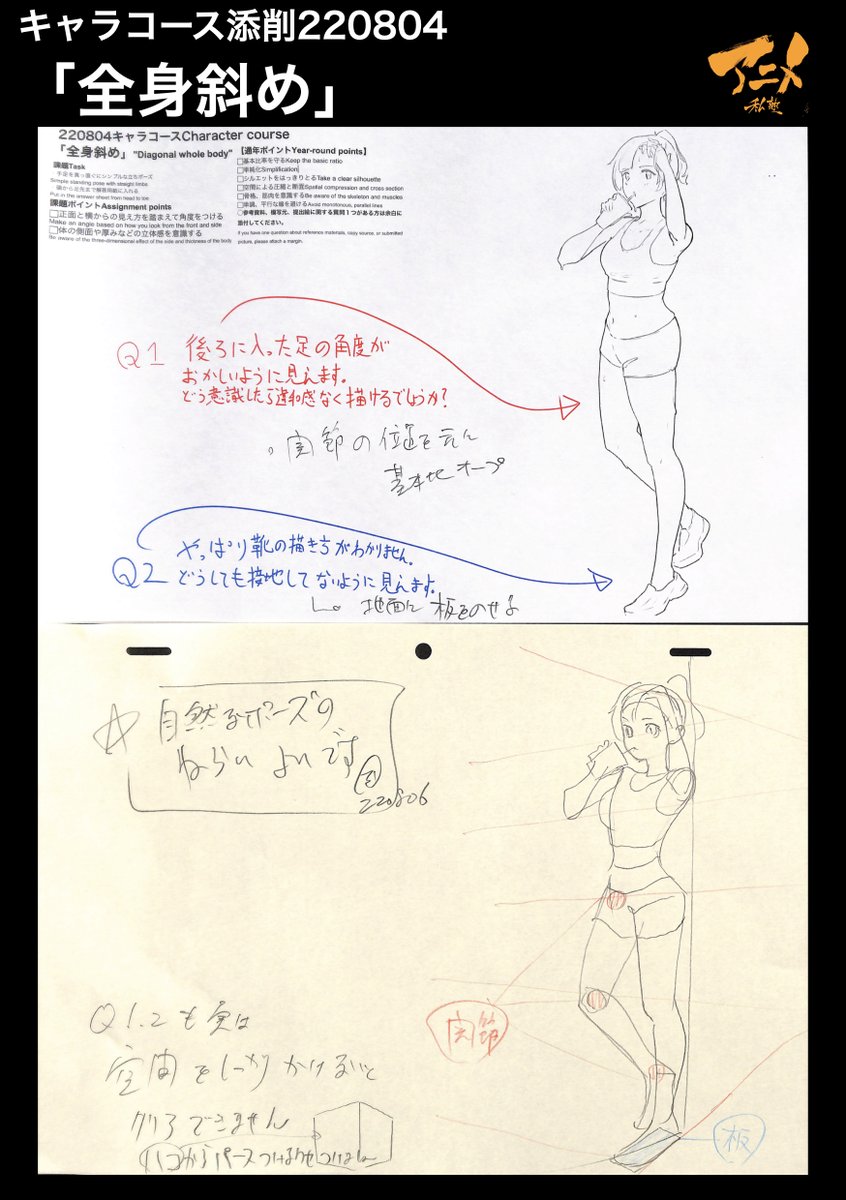 キャラコース添削220804
「全身斜め」
アニメ
私塾
220804キャラコースCharacter course
「全身斜め」"Diagonal whole body"
課題Task
手足を真っ直ぐにシンプルな立ちポーズ
Simple standing pose with straight limbs
頭から足先まで解答用紙に入れる
Put in the answer sheet from head to toe
課題ポイントAssignment points
□正面と横からの見え方を踏まえて角度をつける
Make an angle based on how you look from the front and side
□体の側面や厚みなどの立体感を意識する
Be aware of the three-dimensional effect of the side and thickness of the body
【通年ポイントYear-round points】
□基本比率を守るKeep the basic ratio
□単純化Simplification
□シルエットをはっきりとるTake a clear silhouette
□空間による圧縮と断面Spatial compression and cross section
□骨格、筋肉を意識するBe aware of the skeleton and muscles
□単調、平行な線を避けるAvoid monotonous, parallel lines
○参考資料、模写元、提出絵に関する質問1つがある方は余白に
添付してください。
If you have one question about reference materials, copy source, or submitted
picture, please attach a margin.
Q1 後ろに入った足の角度が
おかしいように見えます。
どう意識したら違和感なく描けるでしょうか?
関節の位置を元に
Q2 やっぱり靴の描き方がわかりません。
どうしても接地してないように見えます。
地面に板をのせる
☆ 自然なポーズの
ねらい よいです
220806
関節
Q1.2も実は
空間をしっかりかけないと
クリアできません
ハコからパースつける
板